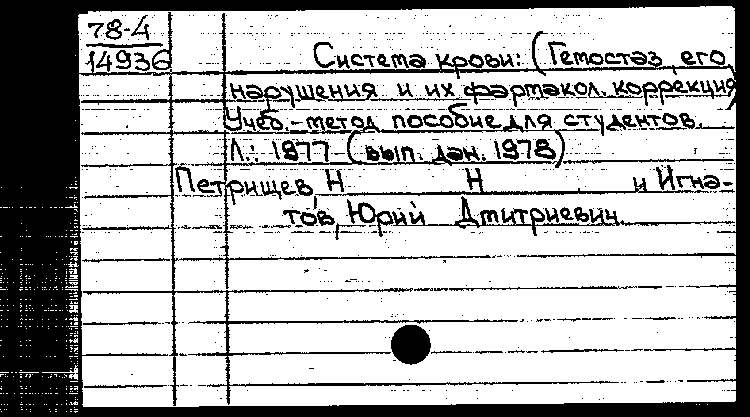 78-4
14936
Система крови: (Гемостаз, его
нарушения и их фармакол. коррекция)
Учеб.-метод пособие для студентов.
Л.: 1977 (вып. дан. 1978)
Петрищев, Н Н и Игна-
тов, Юрий Дмитриевич.